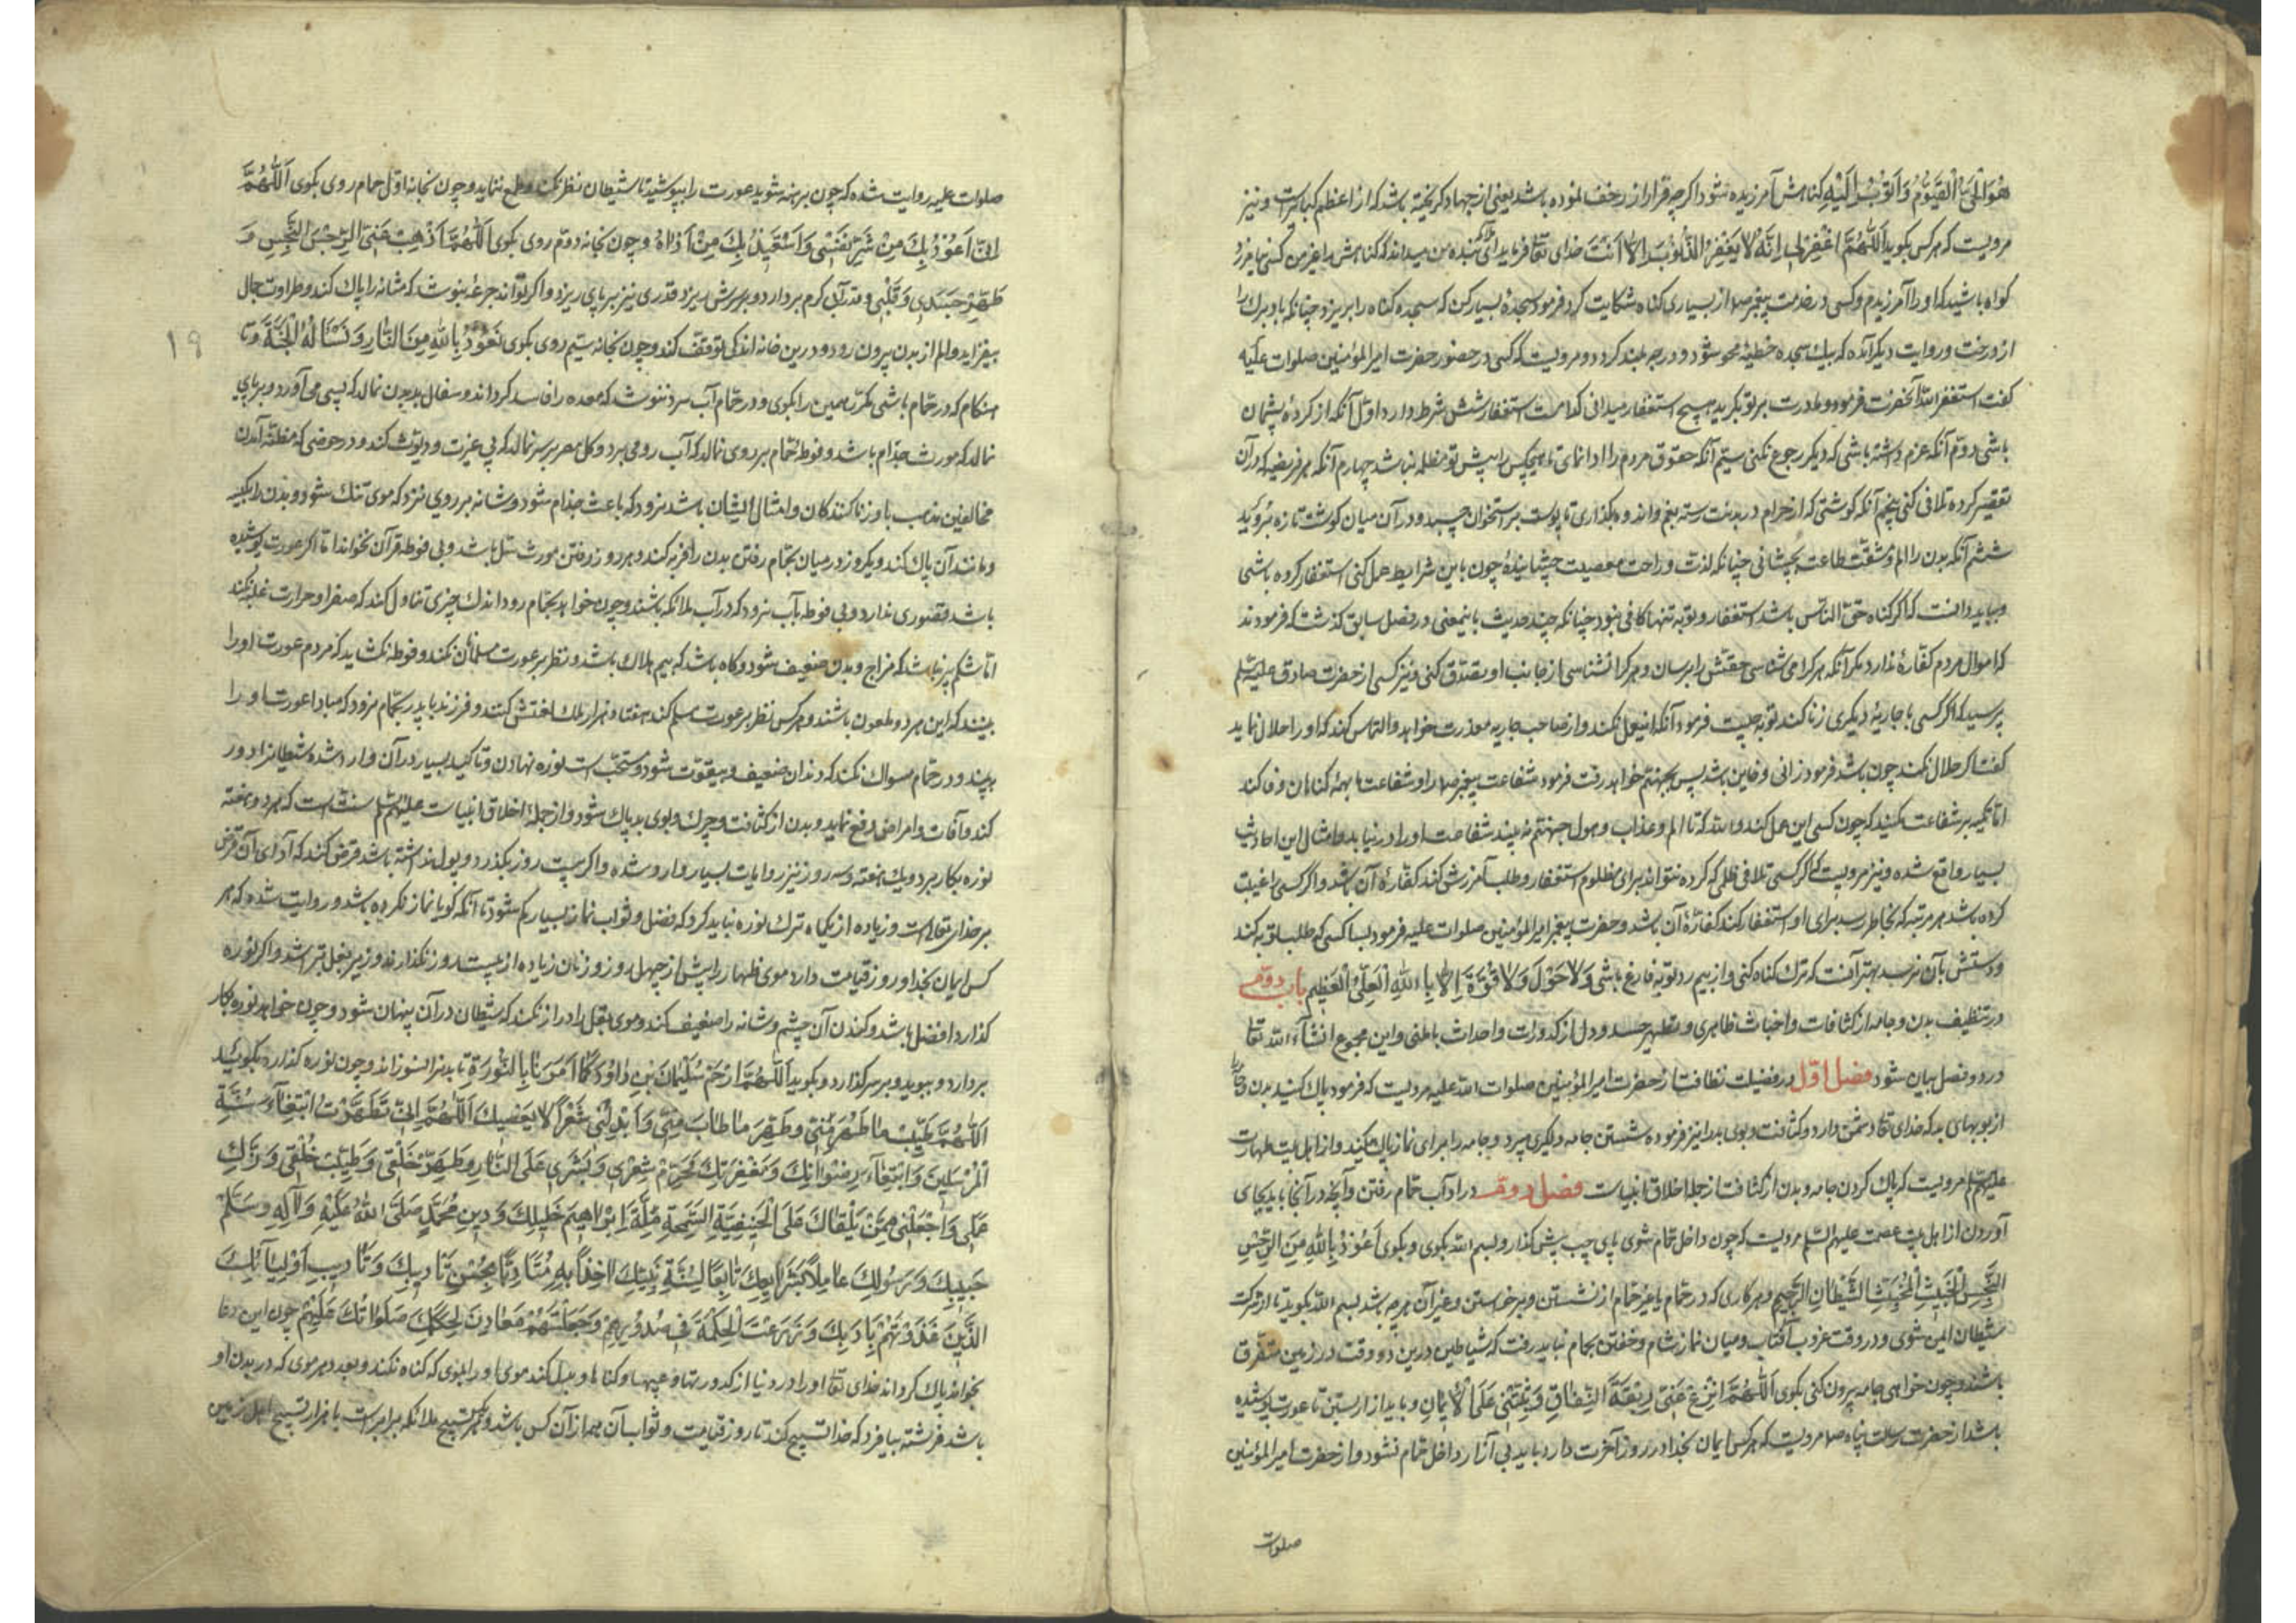 هُوَ الْحَيُّ الْقَيُّومُ وَ اَتُوبُ اِلَيْهِ کناهش آمرزیده شود اکرچه فرار از زحف نموده باشد یعنی از جهاد کریخته باشد که از اعظم کبایر است و نیز
مرویست که هر کس بکوید اَللّٰهُمَّ اغْفِرْ لِی اِنَّهُ لَا یَغْفِرُ الذُّنُوبَ اِلَّا اَنْتَ خدای تعا فرماید ای ملائکه بنده من میداند که کناهش را بغیر من کسی نیامرزد
کواه باشید که او را آمرزیدم و کسی در خدمت پیغمبر صم از بسیاری کناه شکایت کرد فرمود سجدهٔ بسیار کن که سجده کناه را بریزد چنانکه باد برک را
از درخت و روایت دیکر آمده که بیک سجده خطیئه محو شود و درجه بلند کردد و مرویست که کسی در حضور حضرت امیر المؤمنین صلوات علیه
کفت استغفر الله آنحضرت فرمود مادرت بر تو بکرید هیچ استغفار میدانی کدامست استغفار شش شرط دارد اوّل آنکه از کردهٔ پشیمان
باشی دوّم آنکه عزم داشته باشی که دیکر رجوع نکنی سیّم آنکه حقوق مردم را ادا نمای تا هیچکس را پیش تو مظلمه نباشد چهارم آنکه هر فریضهٔ که در آن
تقصیر کرده تلافی کنی پنجم آنکه کوشتی که از حرام در بدنت رسته بغم و اندوه بکذاری تا پوست بر استخوان چسبد و در آن میان کوشت تازه بُروَید
ششم آنکه بدن را الم و مشقّت طاعت بچشانی چنانکه لذت و راحت معصیت چشانیدهٔ چون باین شرایط عمل کنی استغفار کرده باشی
و بباید دانست که اکر کناه حقّ النّاس باشد استغفار و توبه تنها کافی نبود چنانکه چند حدیث باینمعنی در فصل سابق کذشت که فرمودند
که اموال مردم کفّارهٔ ندارد مکر آنکه هر کرا می شناسی حقّش را برسان و هر کرا نشناسی از جانب او تصدّق کنی و نیز کسی از حضرت صادق علیه السّلم
پرسید که اکر کسی با جاریهٔ دیکری زنا کند توبه چیست فرمود آنکه اینعمل نکند و از صاحب جاریه معذرت خواهد و التماس کند که او را حلال نماید
کفت اکر حلال نکند چون باشد فرمود زانی و خاین باشد پس بجهنّم خواهد رفت فرمود شفاعت پیغمبر صم را و شفاعت ما بهمهٔ کناهان وفا کند
امّا تکیه بر شفاعت مکنید که چون کسی این عمل کند والله که تا الم و عذاب و هول جهنّم نه بیند شفاعت او را در نیابد و امثال این احادیث
بسیار واقع شده و نیز مرویست که اکر کسی تلافی ظلمی که کرده نتواند برای مظلوم استغفار و طلب آمرزش کند کفّارهٔ آن باشد و اکر کسی را غیبت
کرده باشد هر مرتبه که بخاطر رسد برای او استغفار کند کفّارهٔ آن باشد و حضرت پیغمبر امیر المؤمنین صلوات علیه فرمود بسا کسی که طلب توبه کند
و دستش بآن نرسد بهتر آنست که ترک کناه کنی و از بیم رد توبه فارغ باشی وَ لَا حَوْلَ وَ لَا قُوَّةَ اِلَّا بِاللّٰهِ الْعَلِیِّ الْعَظِیمِ باب دوّم
در تنظیف بدن و جامه از کثافات و اخباث ظاهری و تطهیر جسد و دل از کدورات و احداث باطنی و این مجموع انشآء الله تعا
در دو فصل بیان شود فصل اوّل در فضیلت نظافت از حضرت امیر المؤمنین صلوات الله علیه مرویست که فرمود پاک کنید بدن
از بویهای بد که خدای تعا دشمن دارد و کثافت و بوی بد را نیز فرموده شستن جامه دلکیری میبرد و جامه را برای نماز پاک میکند و از اهل بیت طهارت
علیهم السلم مرویست که پاک کردن جامه و بدن از کثافت از جملهٔ اخلاق انبیاست فصل دوّم در آداب حمّام رفتن و آنچه در آنجا باید بجای
آوردن از اهل بیت عصمت علیهم السّلم مرویست که چون داخل حمّام شوی پای چپ پیش کذار و بسم الله بکوی و بکوی اَعُوذُ بِاللّٰهِ مِنَ الرِّجْسِ
النَّجِسِ الْخَبِیثِ الْمُخْبِثِ الشَّیْطَانِ الرَّجِیمِ و هر کاری که در حمّام یا غیر حمّام از نشستن و برخواستن و غیر آن هر چه باشد بسم الله بکوید تا از شرکت
شیطان ایمن شوی و در وقت غروب آفتاب و میان نماز شام و خفتن بحمام نباید رفت که شیاطین درین دو وقت در زمین متفرّق
باشند و چون خواهی جامه بیرون کنی بکوی اَللّٰهُمَّ انْزِعْ عَنِّی رِبْقَةَ النِّفَاقِ وَ ثَبِّتْنِی عَلَی الْاِیمَانِ و باید ازار بستن تا عورت پوشیده
باشد از حضرت رسالت پناه صم مرویست که هر کس ایمان بخدا و روز آخرت دارد باید بی آزار داخل حمّام نشود و از حضرت امیر المؤمنین
صلوات
صلوات علیه روایت شده که چون برهنه شوید عورت را بپوشید تا شیطان نظر نکند و طمع ننماید و چون بخانهٔ اوّل حمام روی بکوی اَللّٰهُمَّ
اِنِّی اَعُوذُ بِکَ مِنْ شَرِّ نَفْسِی وَ اَسْتَعِیذُ بِکَ مِنْ اَذَاهُ و چون بخانهٔ دوّم روی بکوی اَللّٰهُمَّ اَذْهِبْ عَنِّی الرِّجْسَ النَّجِسَ وَ
طَهِّرْ جَسَدِی وَ قَلْبِی و قدر آب کرم بردارد و بر سرش ریزد قدری نیز بر پای ریزد و اکر تواند جرعهٔ بنوشد که مثانه را پاک کند و طراوت جمال
بیفزاید و الم از بدن بیرون رود و درین خانه اندکی توقف کند و چون بخانهٔ سیّم روی بکوی نَعُوذُ بِاللّٰهِ مِنَ النَّارِ وَ نَسْئَالُهُ الْجَنَّةَ و تا
۱۹
هنکام که در حمّام باشی مکرّر همین را بکوی و در حمّام آب سرد ننوشد که معده را فاسد کرداند و سفال ببدن نمالد که پیسی می آورد و بر پای
نمالد که مورث جذام باشد و فوطهٔ حمّام بر روی نمالد که آب روی میبرد و کل مصر بر سر نمالد که بی غیرت و دیّوث کند و در حوضی که مظنّهٔ آمدن
مخالفین مذهب یا و زنا کنندکان و امثال ایشان باشد نرود که باعث جذام شود و شانه بر روی نزند که موی تنک شود و بدن را بکیسه
و مانند آن پاک کند و یکروز در میان بحمّام رفتن بدن را فربه کند و هر روز رفتن مورث سل باشد و بی فوطه قرآن نخواند امّا اکر عورت پوشیده
باشد قصوری ندارد و بی فوطه بآب نرود که در آب ملائکه باشند و چون خواهد بحمّام رود اندک چیزی تناول کند که صفرا و حرارت غلبه نکند
امّا شکم پر نباشد که مزاج و بدن ضعیف شود و کاه باشد که بیم هلاک باشد و نظر بر عورت مسلمانان نکند و فوطه نکشاید که مردم عورت او را
بینند که این هر دو ملعون باشند و هر کس نظر بر عورت مسلم کند هفتاد هزار ملک لعنتش کنند و فرزند با پدر بحمّام نرود که مبادا عورت او را
ببیند و در حمّام مسواک نکند که دندان ضعیف و بیقوّت شود و مستحبّ است نوره نهادن و تاکید بسیار در آن وارد شده شیطانرا دور
کند و آفات و امراض دفع نماید و بدن از کثافت و چرک و بوی بد پاک شود و از جملهٔ اخلاق انبیاست علیهم السّلم سنّت است که هر دو هفته
نوره بکار برد و یک هفته و سه روز نیز روایات بسیار وارد شده و اکر بیست روز بکذرد و پول نداشته باشد قرض کند که آدای آن قرض
بر خدای تعالی است و زیاده از یکماه ترک نوره نباید کرد که فضل و ثواب نماز بسیار کم شود تا آنکه کویا نماز نکرده باشد و روایت شده که هر
کس ایمان بخدا و روز قیامت دارد موی ظهار را بیش از چهل روز و زنان زیاده از بیست روز نکذارند و زیر بغل تراشد و اکر نوره
کذارد افضل باشد و کندن آن چشم و شانه را ضعیف کند و موی بغل را دراز نکند که شیطان در آن پنهان شود و چون خواهد نوره بکار
بردارد و ببوید و بر سر کذارد و بکوید اَللّٰهُمَّ ارْحَمْ سُلَیْمَانَ بْنِ دَاوُدَ کَمَا اَمَرَنَا بِالنُّورَةِ تا بدنرا نسوزاند و چون نوره کذارد بکوید
اَللّٰهُمَّ طَیِّبْ مَا طَهُرَ مِنِّی وَ طَهِّرْ مَا طَابَ مِنِّی وَ اَبْدِلْنِی شَعْراً لَا یَعْصِیکَ اَللّٰهُمَّ اِنِّی تَطَهَّرْتُ ابْتِغَآءَ سُنَّةِ
الْمُرْسَلِینَ وَ ابْتِغَآءَ رِضْوَانِکَ وَ مَغْفِرَتِکَ فَحَرِّمْ شَعْرِی وَ بَشَرِی عَلَی النَّارِ وَ طَهِّرْ خَلْقِی وَ طَیِّبْ خُلْقِی وَ زَکِّ
عَمَلِی وَ اجْعَلْنِی مِمَّنْ یَلْقَاکَ عَلَی الْحَنِیفِیَّةِ السَّمْحَةِ مِلَّةِ اِبْرَاهِیمَ خَلِیلِکَ وَ دِینِ مُحَمَّدٍ صَلَّی اللّٰهُ عَلَیْهِ وَ آلِهِ وَ سَلَّمَ
حَبِیبِکَ وَ رَسُولِکَ عَامِلاً بِشَرَایِعِکَ تَابِعاً لِسُنَّةِ نَبِیِّکَ اٰخِذاً بِهِ مُتَأَدِّباً بِحُسْنِ تَأْدِیبِکَ وَ تَأْدِیبِ اَوْلِیَآئِکَ
الَّذِینَ غَذَوْتَهُمْ بِاَدَبِکَ وَ زَرَعْتَ الْحِکْمَةَ فِی صُدُورِهِمْ وَ جَعَلْتَهُمْ مَعَادِنَ لِحِکَمِکَ صَلَوَاتُکَ عَلَیْهِمْ چون این دعا
بخواند پاک کرداند خدای تعا او را در دنیا از کدورتها و عیبها و کناها و بدل کند موی او را بموی که کناه نکند و بعدد هر موی که در بدن او
باشد فرشتهٔ بیافرد که خدا تسبیح کند تا روز قیامت و ثواب آن همه از آن کس باشد و یک تسبیح ملائکه برابر است با هزار تسبیح اهل زمین